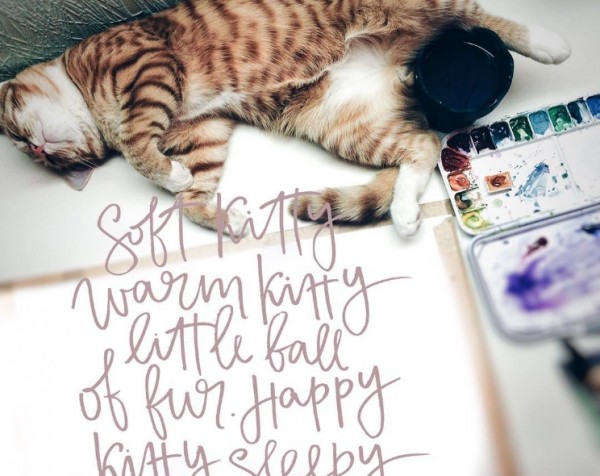 Soft Kitty
warm kitty
little ball
of fur. Happy
kitty sleepy